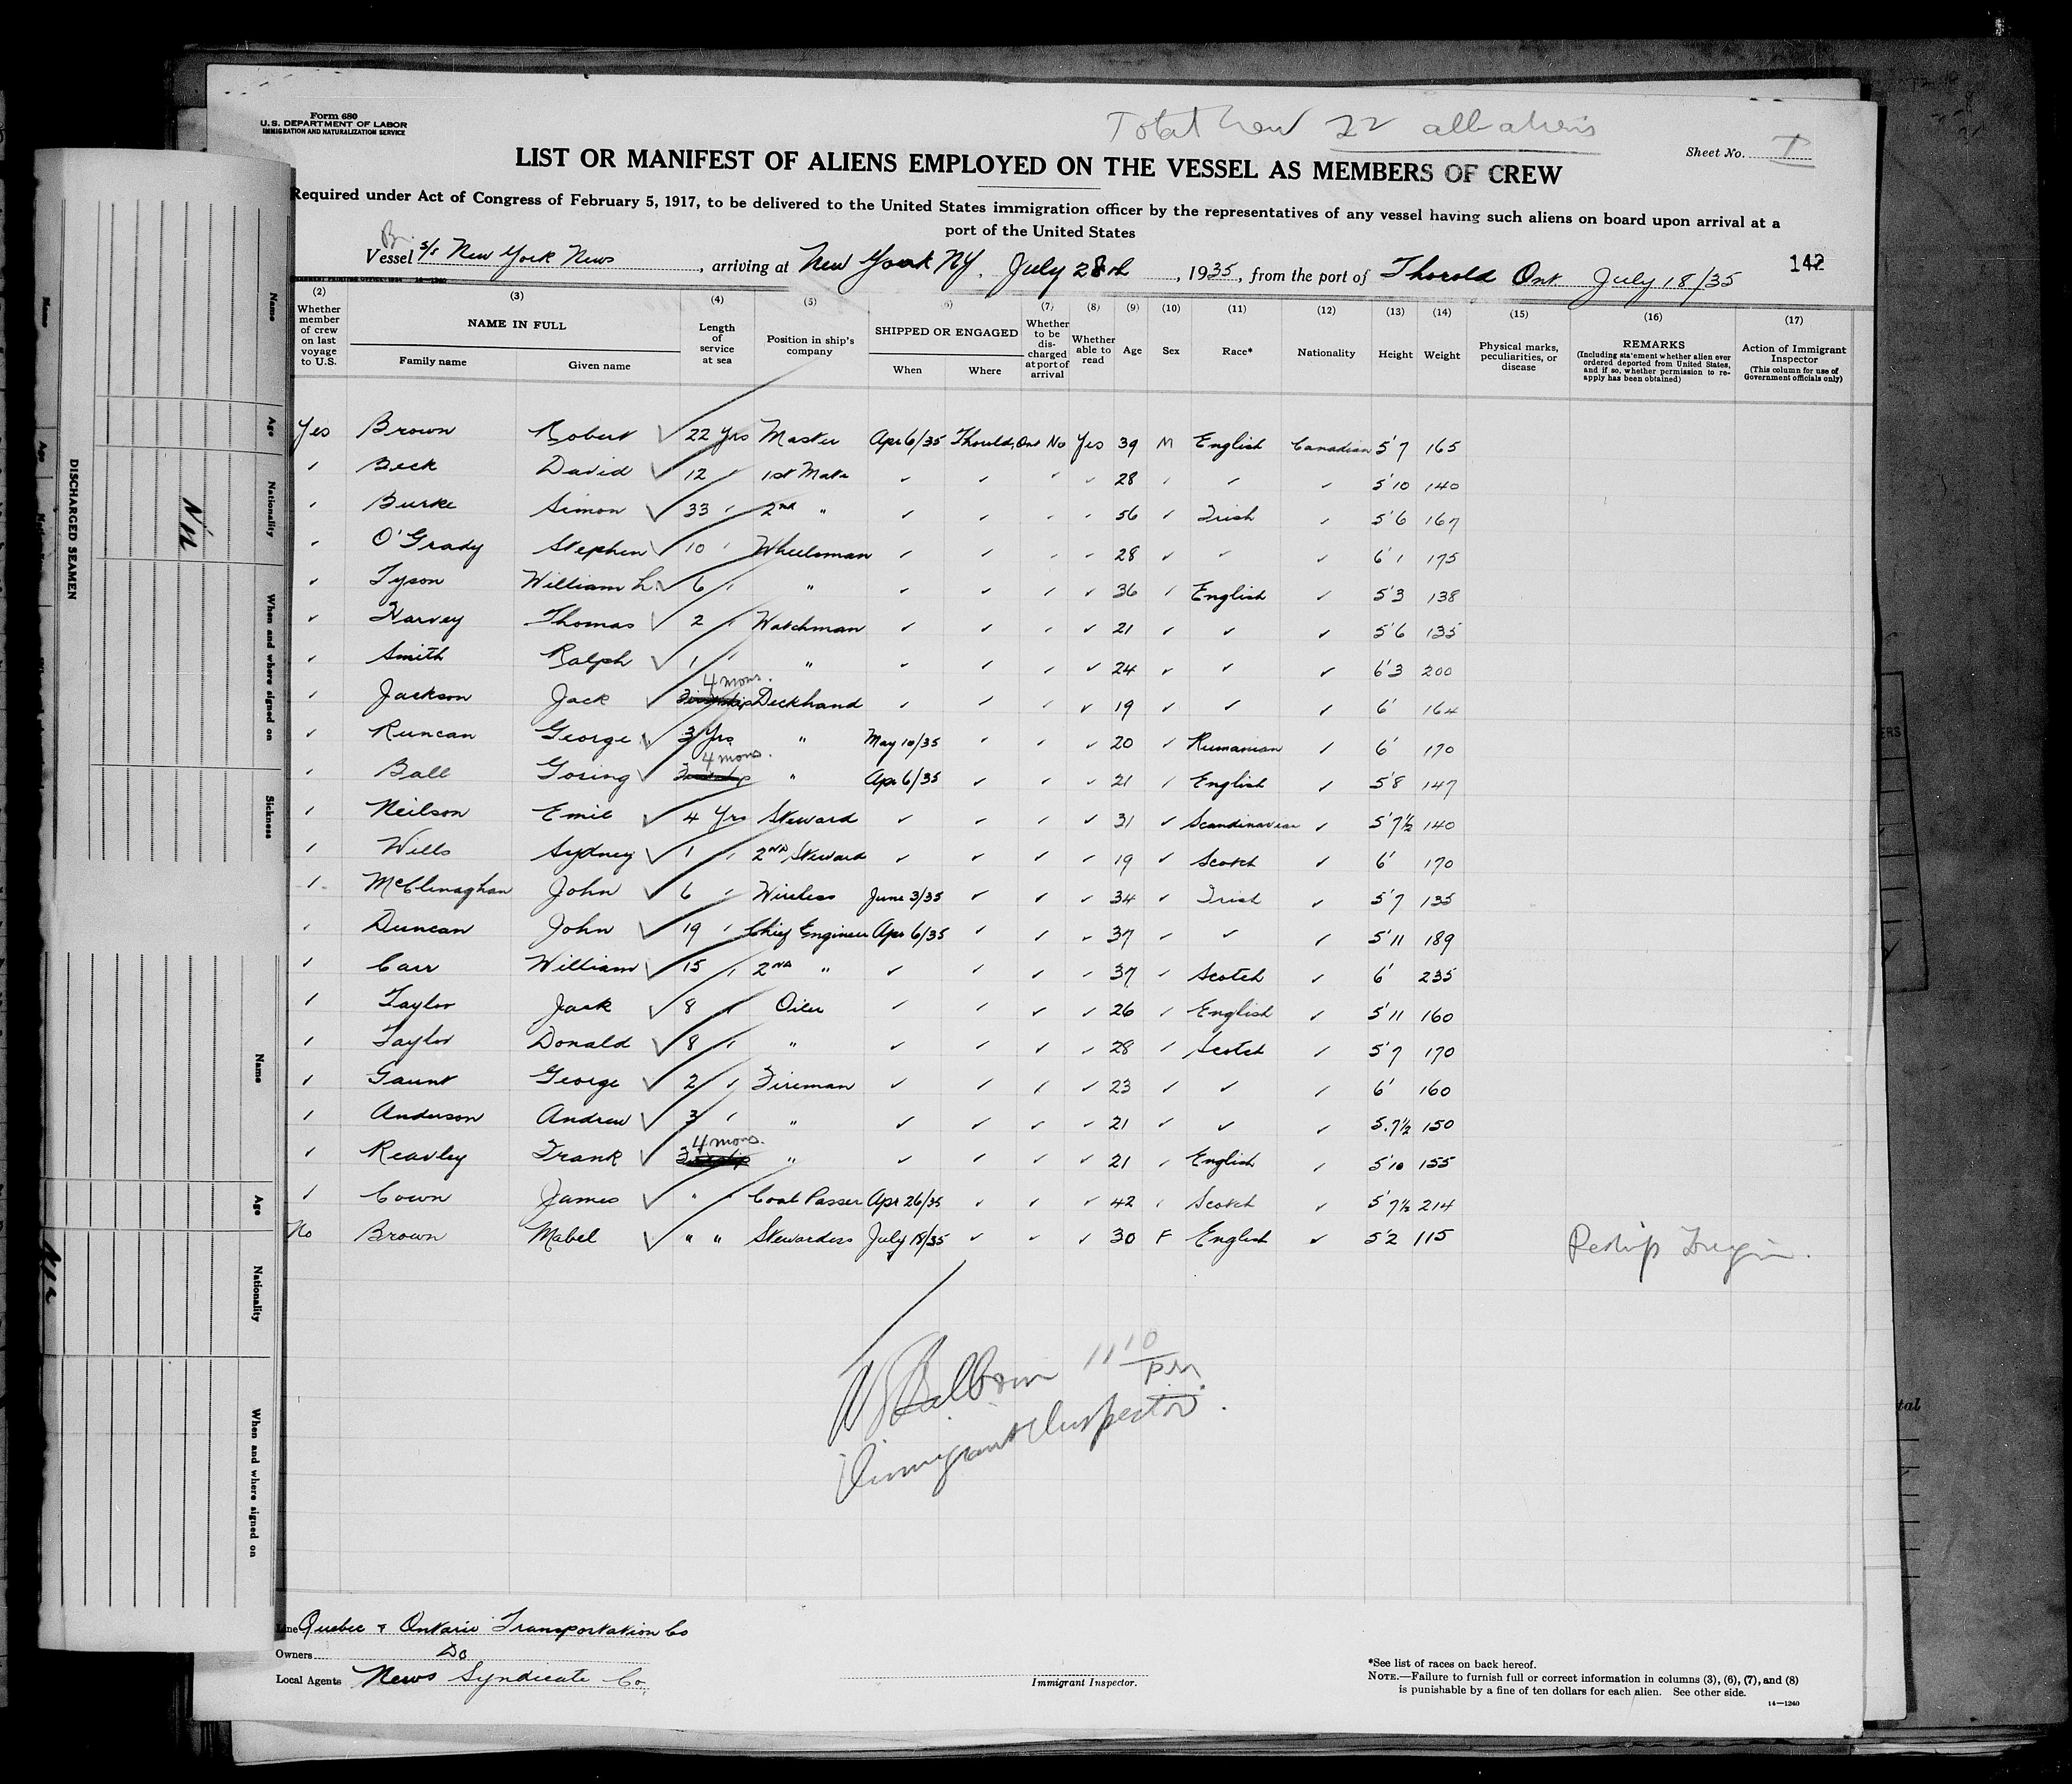 Form 680
U.S. DEPARTMENT OF LABOR
IMMIGRATION AND NATURALIZATION SERVICE
Total crew 22 all aliens
Sheet No. 1
LIST OR MANIFEST OF ALIENS EMPLOYED ON THE VESSEL AS MEMBERS OF CREW
Required under Act of Congress of February 5, 1917, to be delivered to the United States immigration officer by the representatives of any vessel having such aliens on board upon arrival at a
port of the United States
Br.
Vessel S/S New York News, arriving at New York NY. July 28th, 1935, from the port of Thorold Ont July 18/35
142
(2) Whether member of crew on last voyage to U.S.
(3) NAME IN FULL Family name Given name
(4) Length of service at sea
(5) Position in ship's company
(6) SHIPPED OR ENGAGED When Where
(7) Whether to be discharged at port of arrival
(8) Whether able to read
(9) Age
(10) Sex
(11) Race*
(12) Nationality
(13) Height
(14) Weight
(15) Physical marks, peculiarities, or disease
(16) REMARKS (Including statement whether alien ever ordered deported from United States, and if so, whether permission to reapply has been obtained)
(17) Action of Immigrant Inspector (This column for use of Government officials only)
Yes Brown Robert ✓ 22 Yrs Master Apr 6/35 Thorold, Ont No Yes 39 M English Canadian 5'7 165
✓ Beck David ✓ 12 ✓ 1st Mate ✓ ✓ ✓ ✓ 28 ✓ ✓ ✓ 5'10 140
✓ Burke Simon ✓ 33 ✓ 2nd " ✓ ✓ ✓ ✓ 56 ✓ Irish ✓ 5'6 167
✓ O'Grady Stephen ✓ 10 ✓ Wheelsman ✓ ✓ ✓ ✓ 28 ✓ ✓ ✓ 6'1 175
✓ Tyson William L. ✓ 6 ✓ " ✓ ✓ ✓ ✓ 36 ✓ English ✓ 5'3 138
✓ Harvey Thomas ✓ 2 ✓ Watchman ✓ ✓ ✓ ✓ 21 ✓ ✓ ✓ 5'6 135
✓ Smith Ralph ✓ 1 ✓ " ✓ ✓ ✓ ✓ 24 ✓ ✓ ✓ 6'3 200
✓ Jackson Jack ✓ 4 mons. Deckhand ✓ ✓ ✓ ✓ 19 ✓ ✓ ✓ 6' 164
✓ Runcan George ✓ 3 Yrs " May 10/35 ✓ ✓ ✓ 20 ✓ Rumanian ✓ 6' 170
✓ Ball Goring ✓ 4 mons. " Apr 6/35 ✓ ✓ ✓ 21 ✓ English ✓ 5'8 147
✓ Neilson Emil ✓ 4 Yrs Steward ✓ ✓ ✓ ✓ 31 ✓ Scandinavian ✓ 5'7½ 140
✓ Wills Sydney ✓ 1 ✓ 2ND Steward ✓ ✓ ✓ ✓ 19 ✓ Scotch ✓ 6' 170
✓ McClenaghan John ✓ 6 ✓ Wireless June 3/35 ✓ ✓ ✓ 34 ✓ Irish ✓ 5'7 135
✓ Duncan John ✓ 19 ✓ Chief Engineer Apr 6/35 ✓ ✓ ✓ 37 ✓ ✓ ✓ 5'11 189
✓ Carr William ✓ 15 ✓ 2ND " ✓ ✓ ✓ ✓ 37 ✓ Scotch ✓ 6' 235
✓ Taylor Jack ✓ 8 ✓ Oiler ✓ ✓ ✓ ✓ 26 ✓ English ✓ 5'11 160
✓ Taylor Donald ✓ 8 ✓ " ✓ ✓ ✓ ✓ 28 ✓ Scotch ✓ 5'7 170
✓ Gaunt George ✓ 2 ✓ Fireman ✓ ✓ ✓ ✓ 23 ✓ ✓ ✓ 6' 160
✓ Anderson Andrew ✓ 3 ✓ " ✓ ✓ ✓ ✓ 21 ✓ ✓ ✓ 5.7½ 150
✓ Reavley Frank ✓ 4 mons. " ✓ ✓ ✓ ✓ 21 ✓ English ✓ 5'10 155
✓ Cown James ✓ " ✓ Coal Passer Apr 26/35 ✓ ✓ ✓ 42 ✓ Scotch ✓ 5'7½ 214
No Brown Mabel ✓ " " Stewardess July 18/35 ✓ ✓ ✓ 30 F English ✓ 5'2 115
11 10 PM
Immigrant Inspector.
Line Quebec & Ontario Transportation Co
Owners Do
Local Agents News Syndicate Co.
Immigrant Inspector.
*See list of races on back hereof.
NOTE.—Failure to furnish full or correct information in columns (3), (6), (7), and (8)
is punishable by a fine of ten dollars for each alien. See other side.
14—1240
DISCHARGED SEAMEN
Name
Age
Nationality
When and where signed on
Sickness
Nil
Name
Age
Nationality
When and where signed on